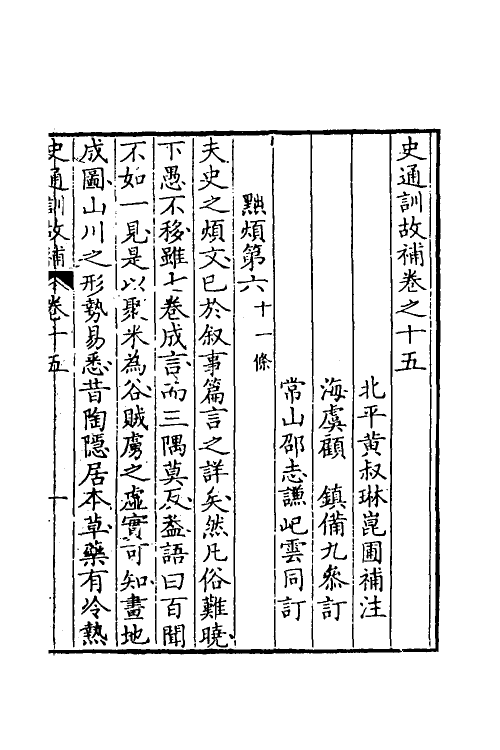 史通訓故補卷之十五
北平黄叔琳崑圃補注
海虞顧　鎮備九叅訂
常山邵志謙屺雲同訂
點煩第六十一條
夫史之煩文已於叙事篇言之詳矣然凡俗難曉
下愚不移雖七卷成言而三隅莫反葢語曰百聞
不如一見是以聚米為谷賊虜之虛實可知畫地
成圖山川之形勢易悉昔陶隠居本草藥有冷熱
史通訓故補　卷十五　一